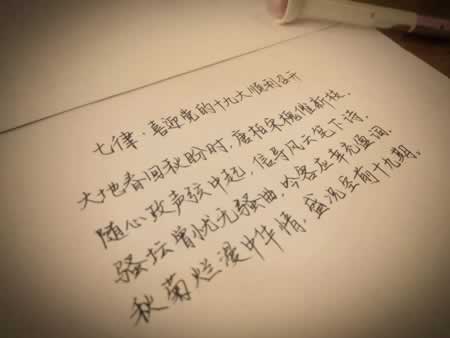 七律·喜迎党的十九大顺利召开
大地春回秋盼时，唐柏宋槐催新枝。
随心政声弦中起，信导风云笔下诗。
骚坛曾忧无骚曲，吟客应幸充盈词。
秋菊烂漫中华情，盛况空前十九期。